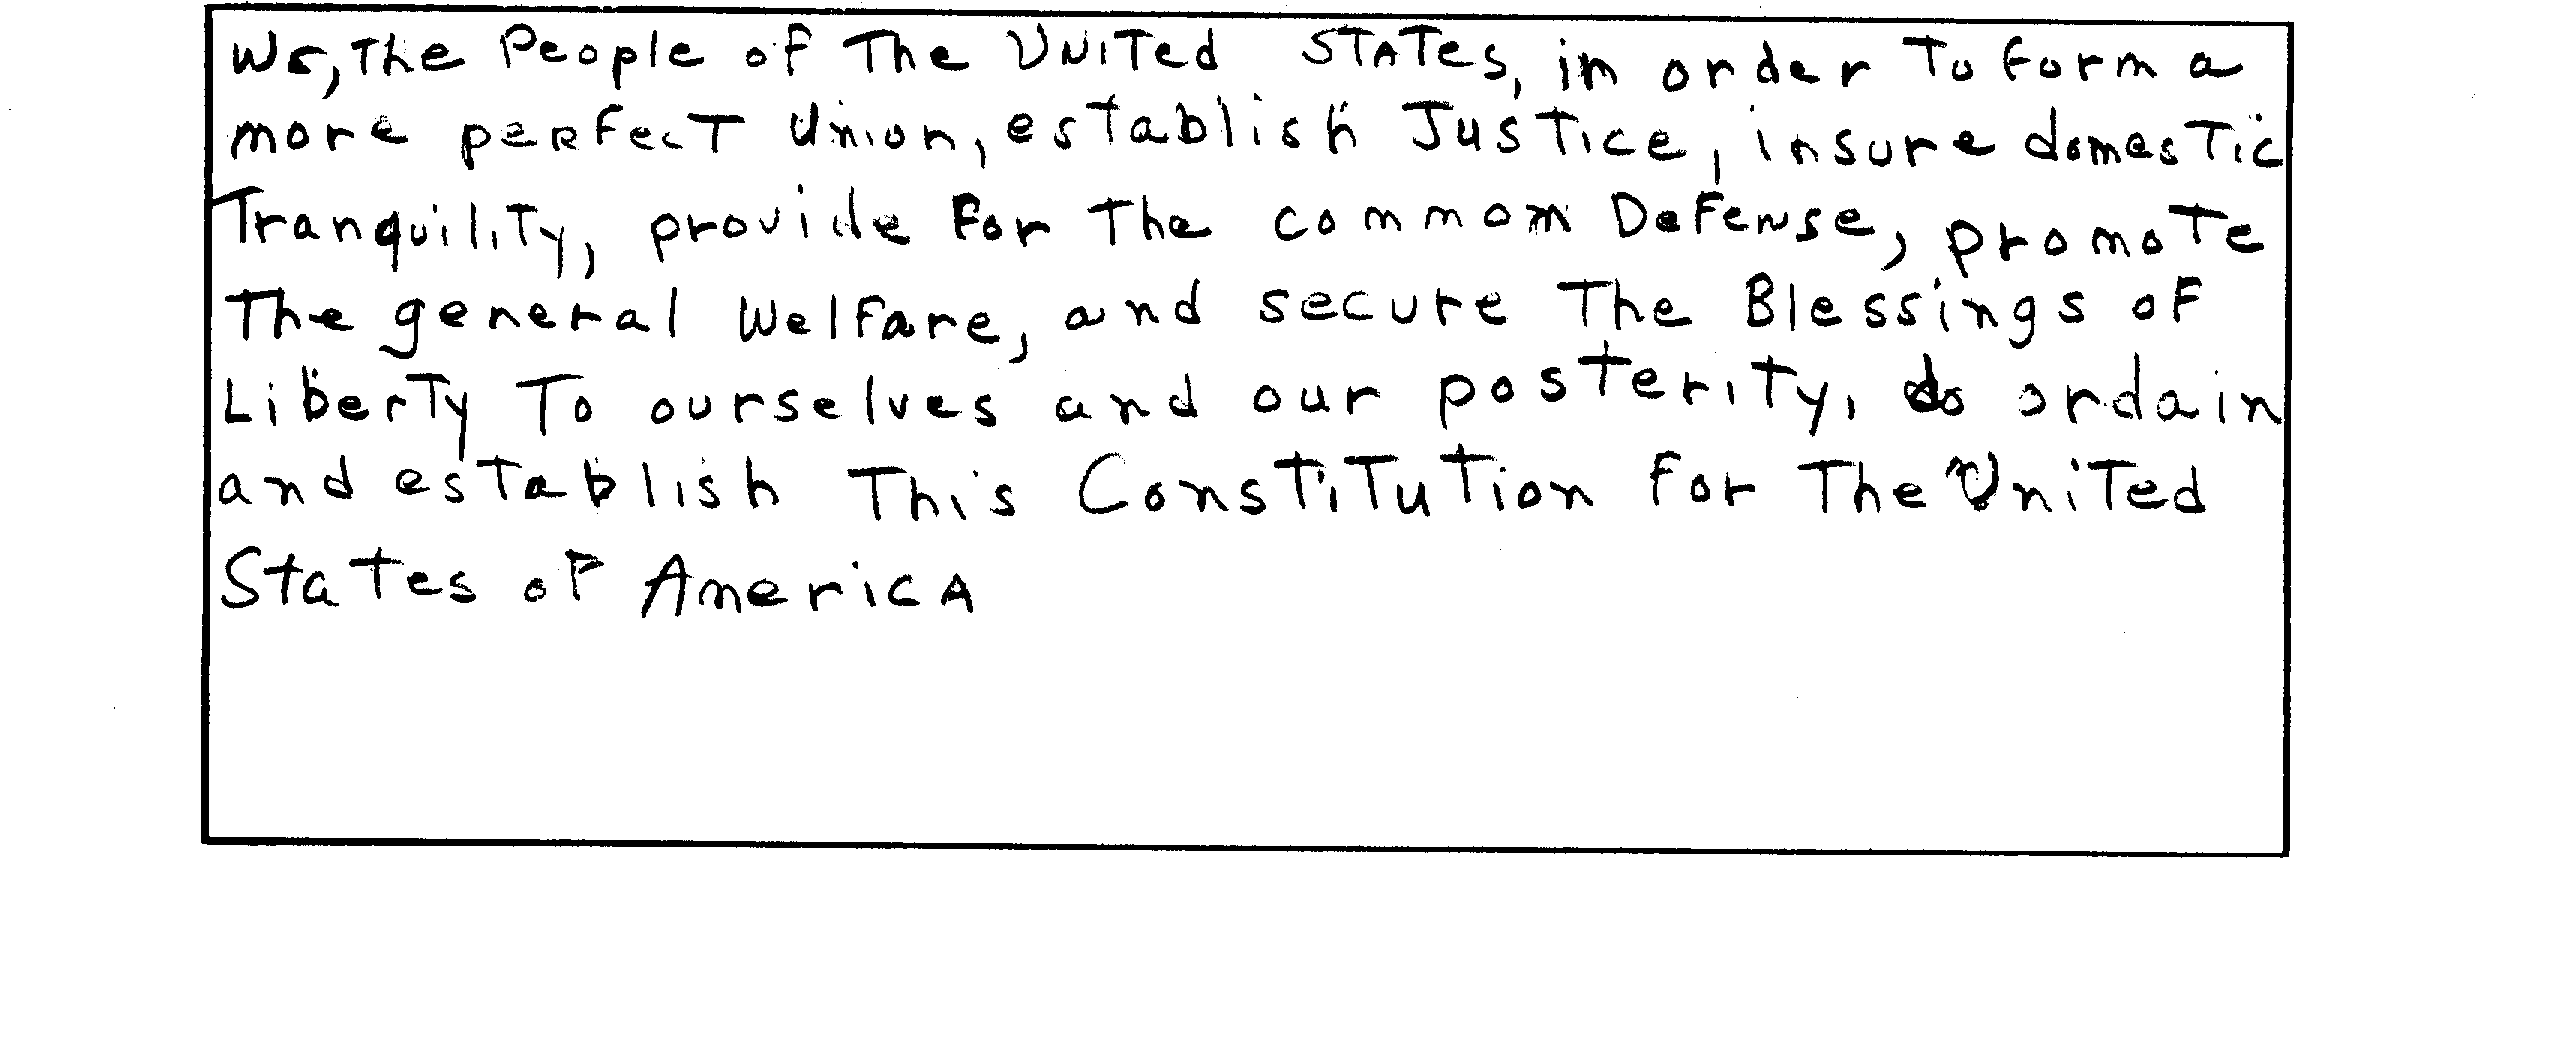 We, the People of The United States, in order To form a
more perfect Union, establish Justice, insure domestic
Tranquility, provide For The common Defense, promote
The general Welfare, and secure The Blessings of
Liberty To ourselves and our posterity, do ordain
and establish This Constitution for The United
States of America